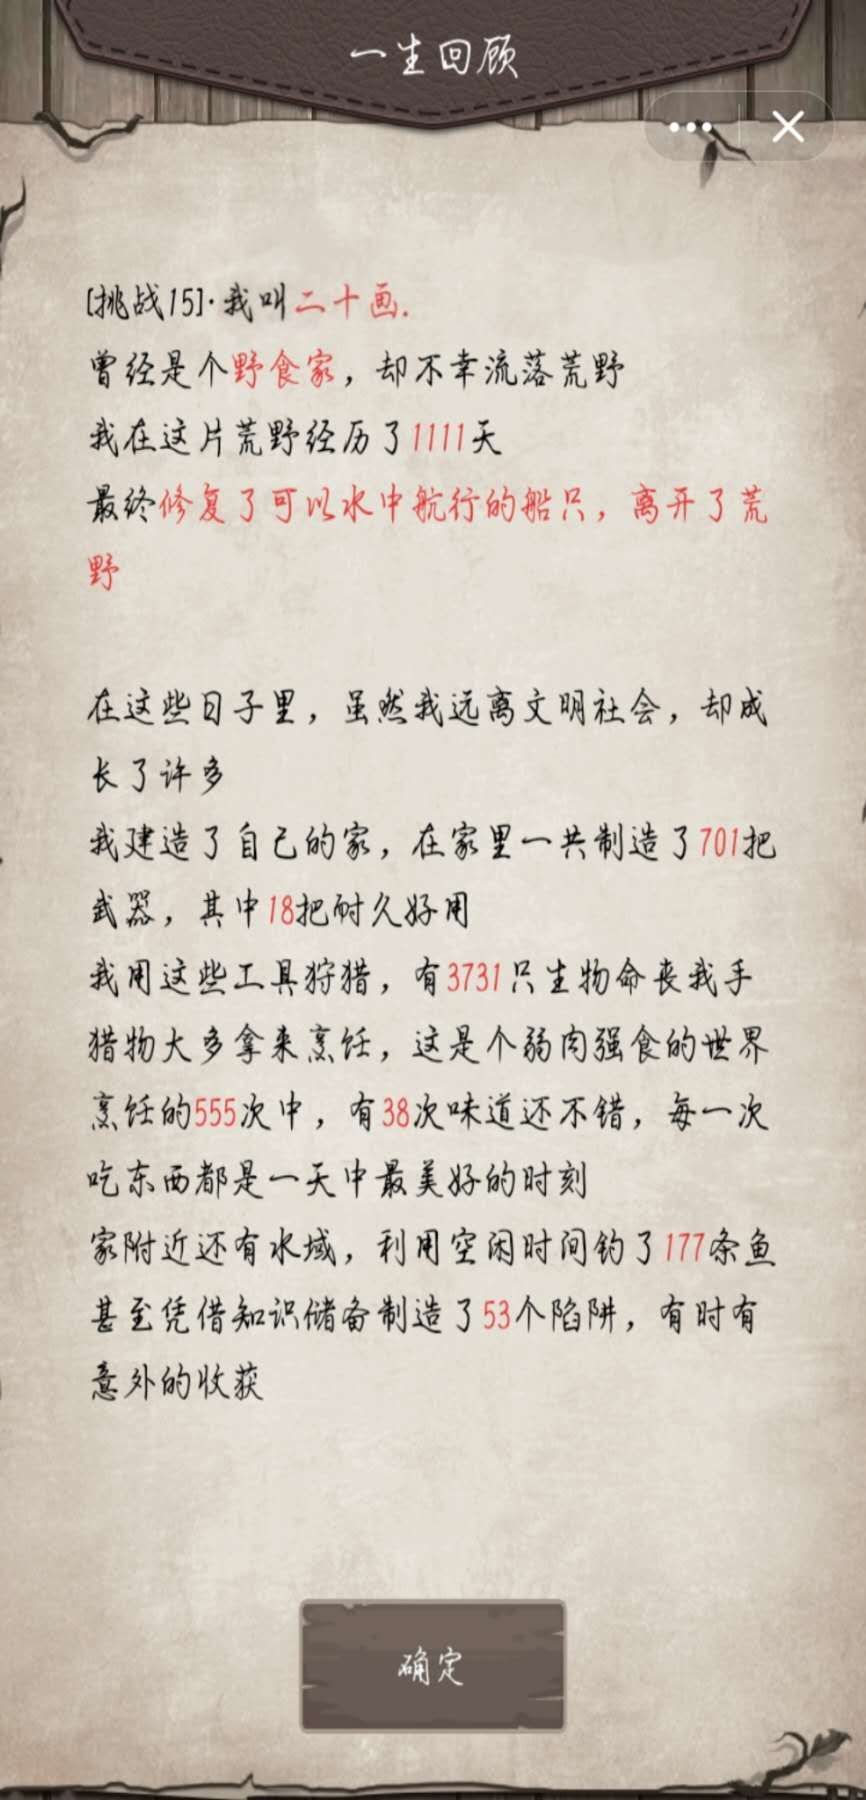 一生回顾
[挑战15]·我叫二十画.
曾经是个野食家，却不幸流落荒野
我在这片荒野经历了1111天
最终修复了可以水中航行的船只，离开了荒
野
在这些日子里，虽然我远离文明社会，却成
长了许多
我建造了自己的家，在家里一共制造了701把
武器，其中18把耐久好用
我用这些工具狩猎，有3731只生物命丧我手
猎物大多拿来烹饪，这是个弱肉强食的世界
烹饪的555次中，有38次味道还不错，每一次
吃东西都是一天中最美好的时刻
家附近还有水域，利用空闲时间钓了177条鱼
甚至凭借知识储备制造了53个陷阱，有时有
意外的收获
确定